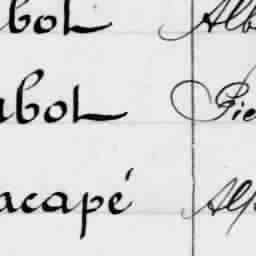 bol Alb
abol Pie
acapé Alp